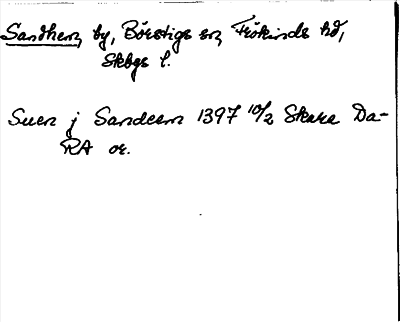 Sandhem, by, Börstigs sn, Frökinds hd,
Skbgs l.
Suen j Sandeem 1397 10/2 Skara Da-
RA or.